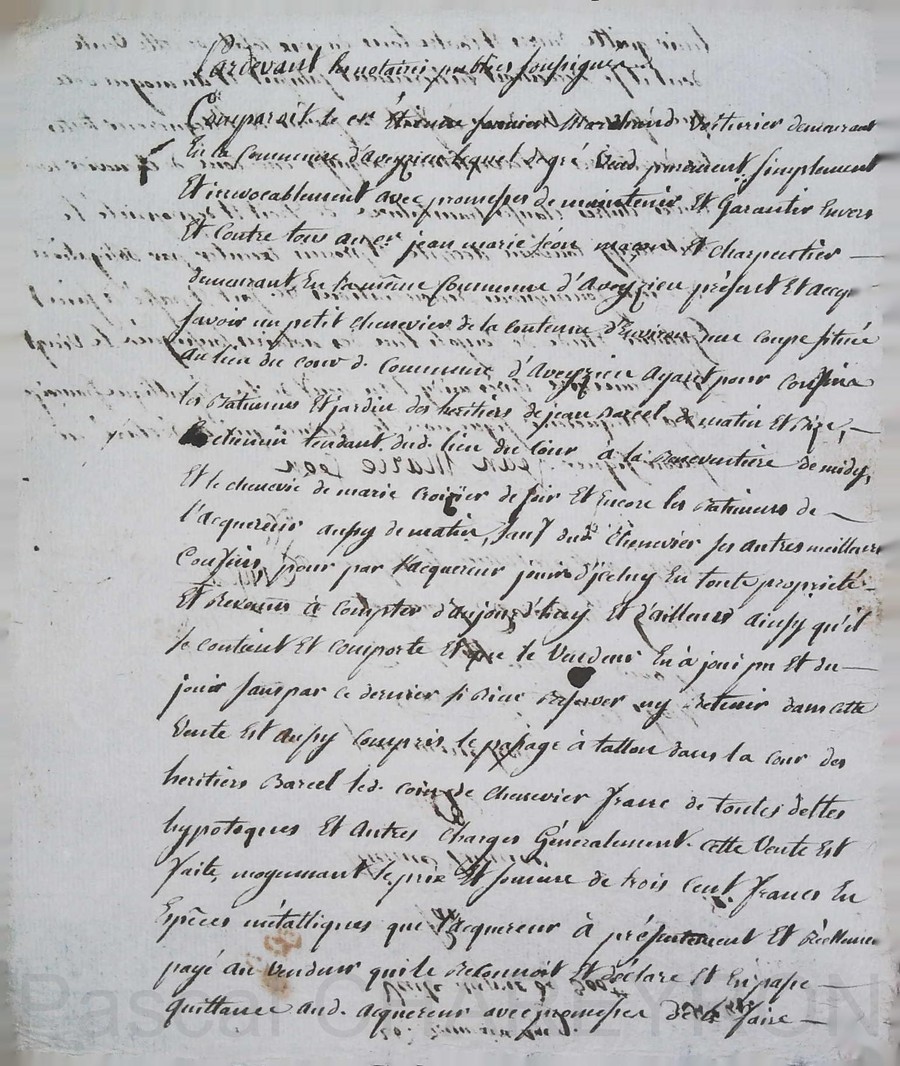 Pardevant les notaires publics soussignes
Comparait le cn. Étienne Marchand Voiturier demeurant
En la Commune d'aveyzieu lequel de gré vend purement, simplement
Et irrevocablement avec promesses de maintenir Et Garantir Envers
Et Contre tous au cn. jean marie Léon maçon Et charpentier —
demeurant En la même Commune d'Aveyzieu présent Et accp
Savoir un petit chenevier de la contenue d'Environ une coupe situé
au lieu du cour d. commune d'Aveyzieu ayant pour confins
les Batimens Et jardin des heritiers de jean Barcel de matin Et Bize, —
Le chemin tendant dud. lieu du Cour a la de midy,
Et le chenevie de marie croizier de soir Et Encore les Batimens de —
l'acquereur aussy de matin, sauf dud. chenevier ses autres meilleurs
Confins, pour par l'acquereur jouir d'jceluy En toute propriété —
Et Revenus à compter d'aujourd'huy Et d'ailleurs ainsy qu'il
se contient Et comporte Et que le Vendeur En à joui pu Et du —
jouir sans par ce dernier si Rien Reserver ny Retenir dans cette
Vente Est aussy compris le passage à tallon dans la cour des
heritiers Barcel led. coin de chenevier franc de toutes dettes
hypoteques Et autres charges Généralement. cette Vente Est
faite, moyennant le prix Et somme de trois cent francs En
Espèces métalliques que l'acquereur à présentement Et Réellement
payé au Vendeur qui le Reconnoit Et déclare Et En passe —
quittance aud. acquereur avec promesses de le faire —
Pascal CHAREYRON